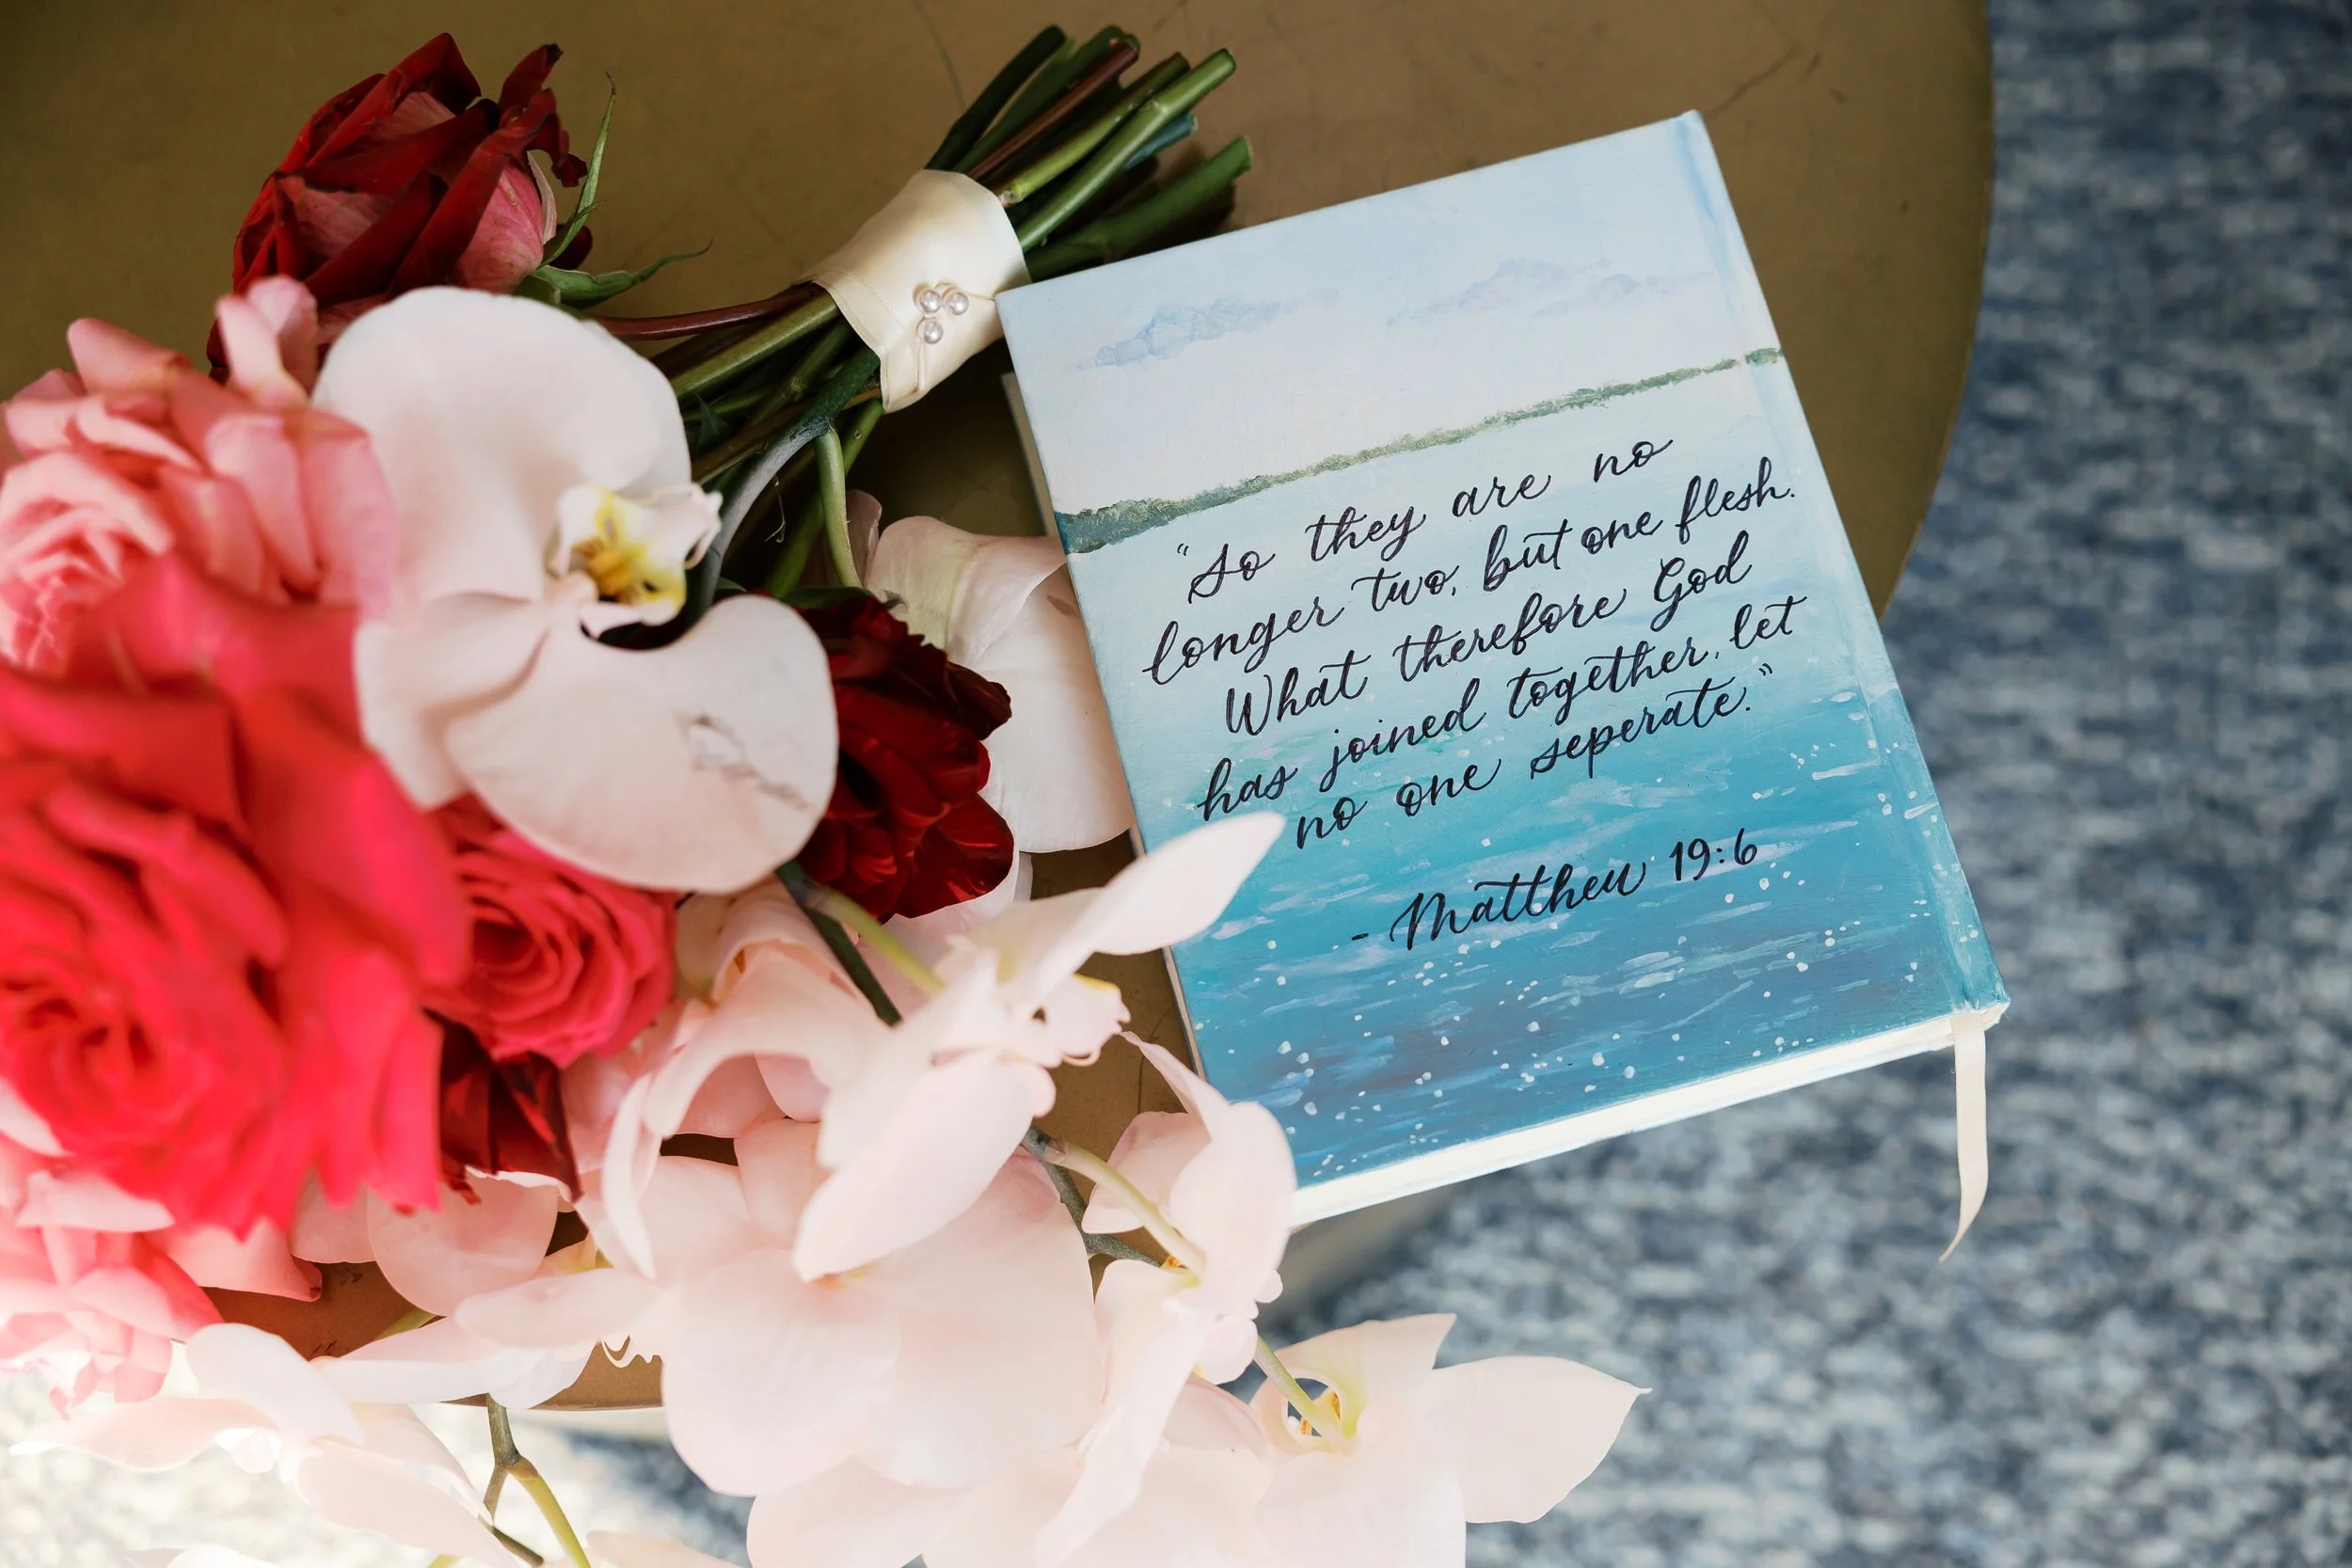 "So they are no
longer two, but one flesh.
What therefore God
has joined together, let
no one seperate."
- Matthew 19:6